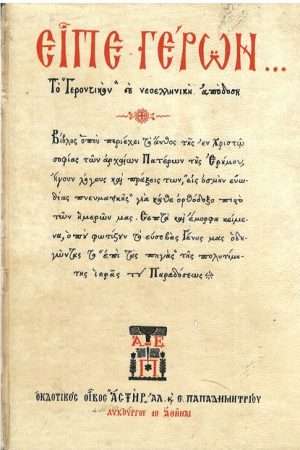 ΕΙΠΕ ΓΕΡΩΝ...
Τὸ "Γεροντικὸν" σὲ νεοελληνικὴ ἀπόδοση
Βίβλος ὁποὺ περιέχει τὸ ἄνθος τῆς ἐν Χριστῷ
σοφίας τῶν ἀρχαίων Πατέρων τῆς Ἐρήμου,
ἤγουν λόγους καὶ πράξεις των, εἰς ὀσμὴν εὐω-
δίας πνευματικῆς γιὰ κάθε ὀρθόδοξο πιστὸ
τῶν ἡμερῶν μας. Σεπτὰ καὶ ἔμορφα κείμε-
να, ὁποὺ φωτίζουν τὸ εὐσεβὲς Γένος μας ὁδη-
γῶντας το ἐπὶ τὰς πηγὰς τῆς πολυτίμη-
της ἱερᾶς του Παραδόσεως
Α Ε
Π
ΕΚΔΟΤΙΚΟΣ ΟΙΚΟΣ "ΑΣΤΗΡ" ΑΛ. & Ε. ΠΑΠΑΔΗΜΗΤΡΙΟΥ
ΛΥΚΟΥΡΓΟΥ 10 ΑΘΗΝΑΙ